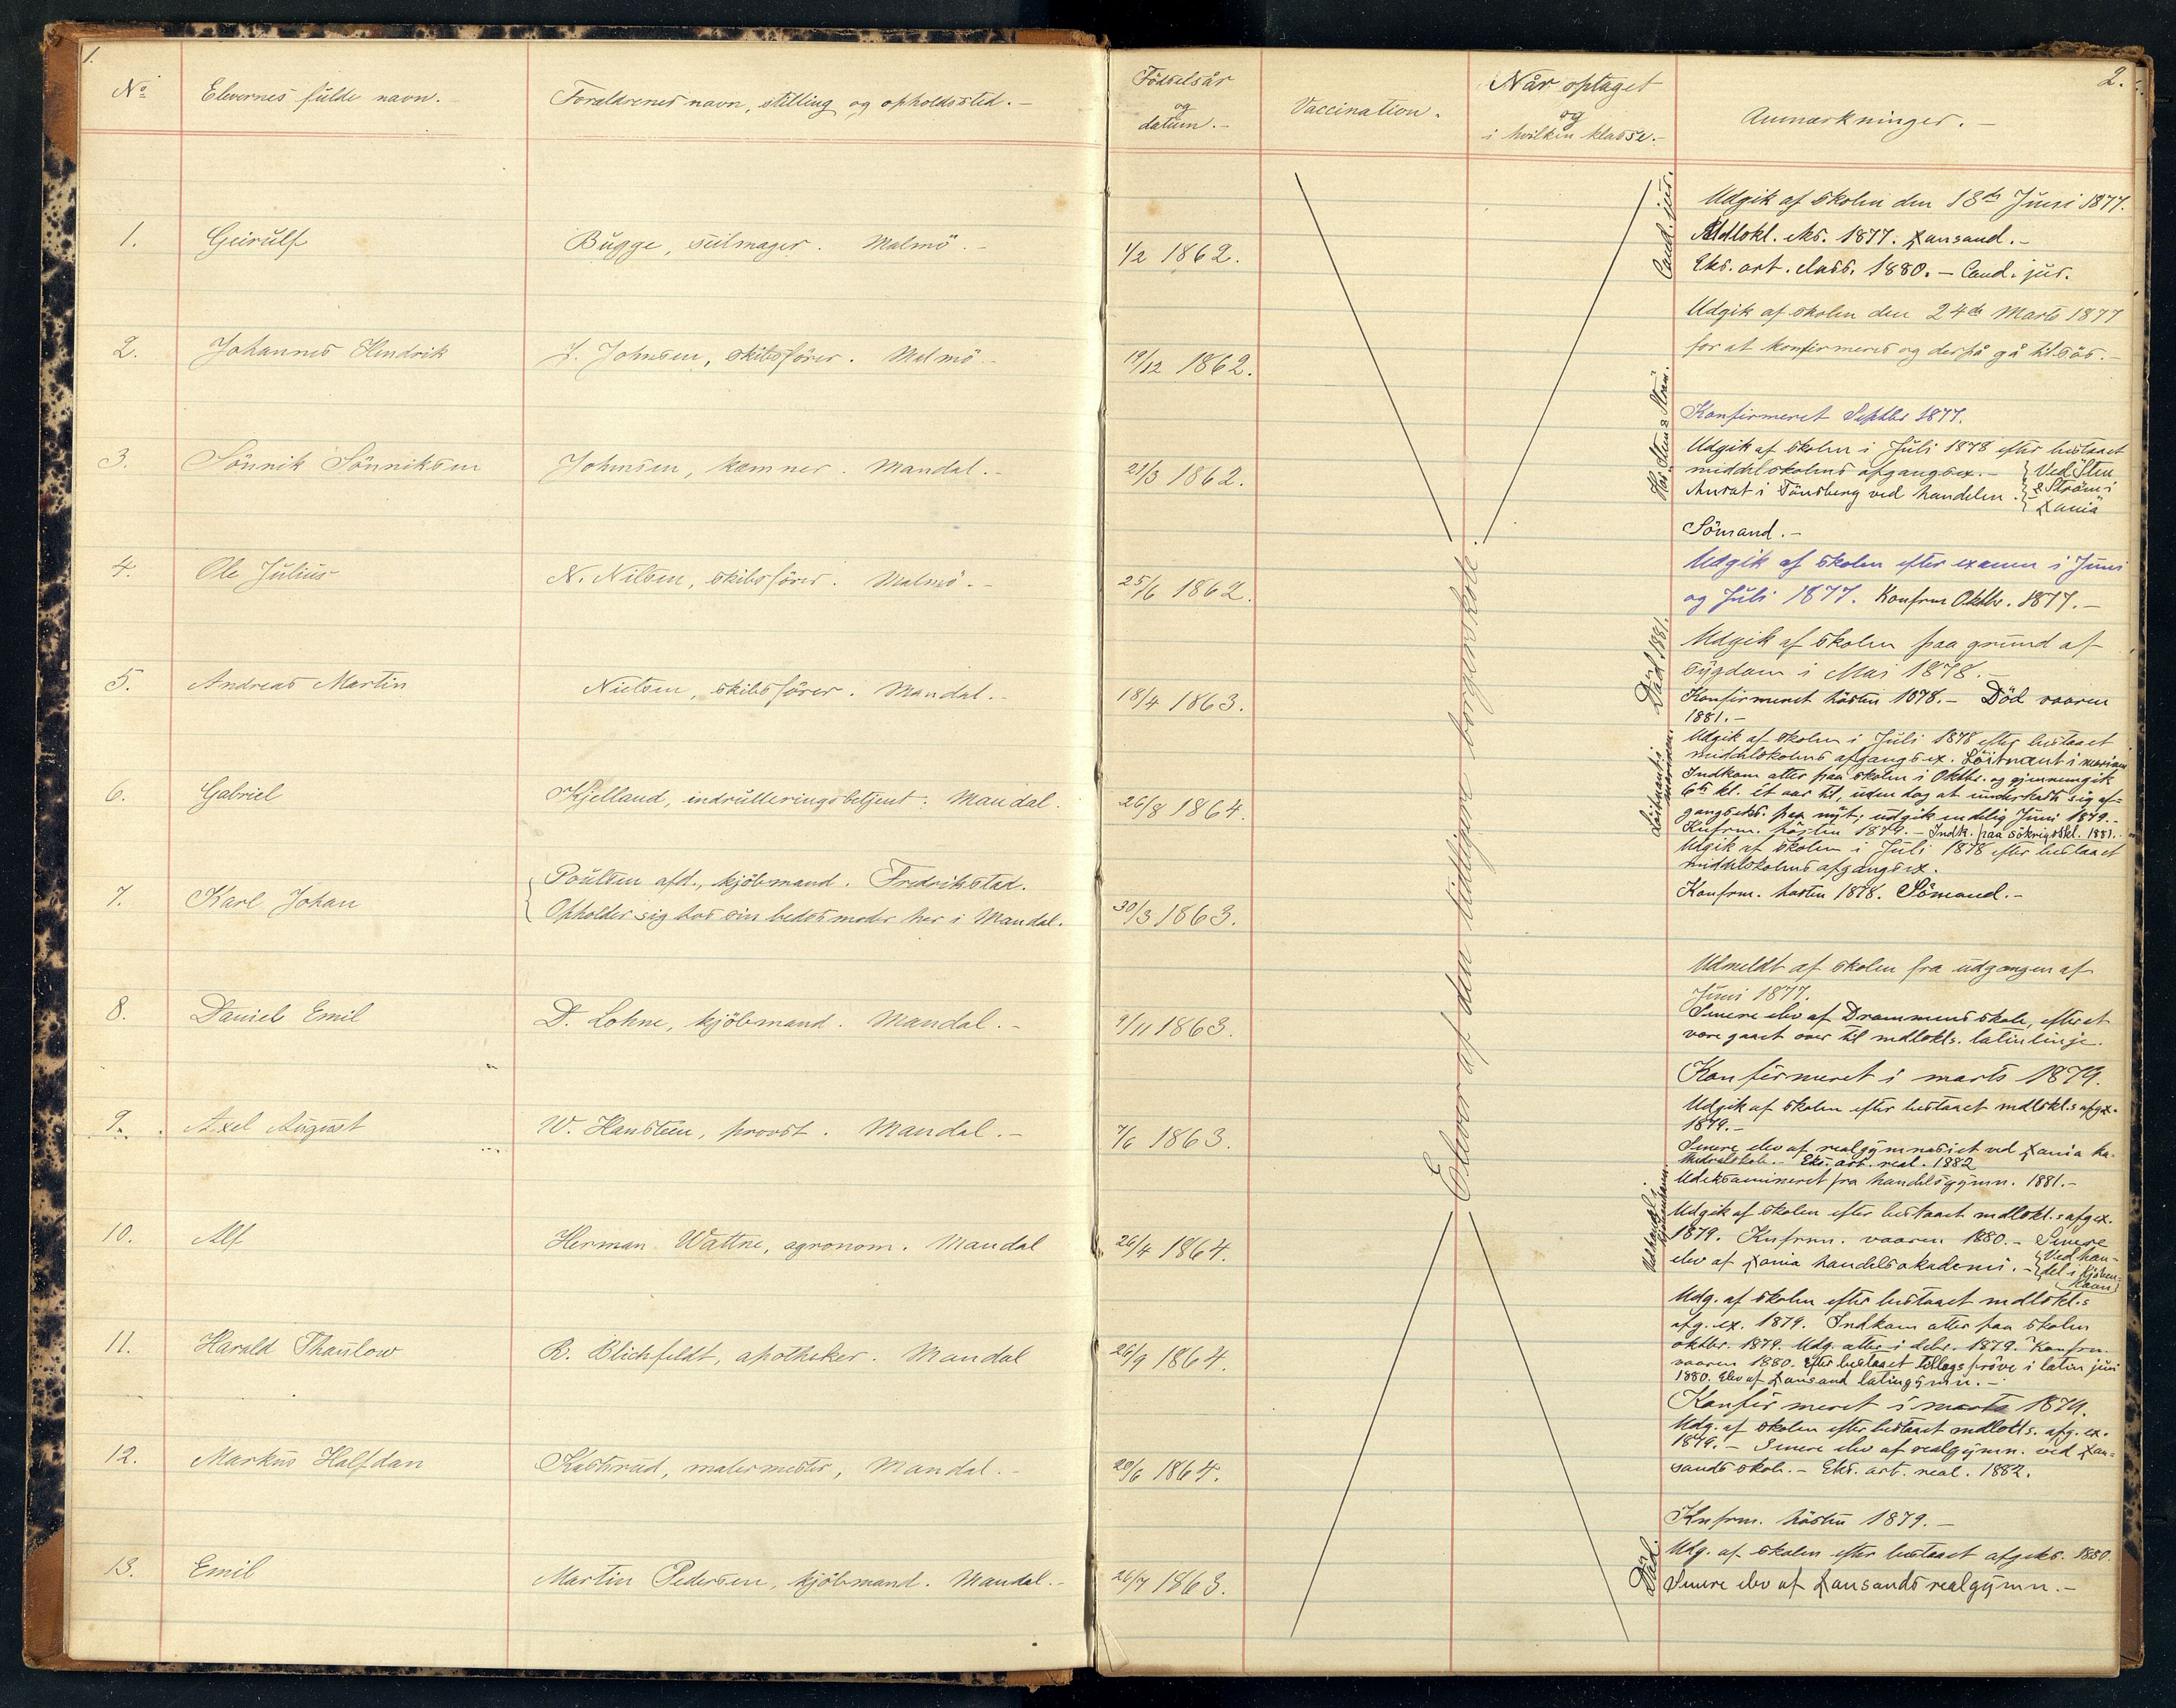 1.
No
Elevernes fulde navn.
Forældrenes navn, stilling og opholdssted.
1. Geirulf
Bugge, seilmager. Malmö.
2. Johannes Hendrik
J. Johnsen, skibsförer. Malmö.
3. Sönnik Sönniksen
Johnsen, kæmner. Mandal.
4. Ole Julius
N. Nilsen, skibsförer. Malmö.
5. Andreas Martin
Nielsen, skibsförer. Mandal.
6. Gabriel
Kjelland, indrulleringsbetjent. Mandal.
7. Karl Johan
Poulsen afd., kjöbmand. Fredrikstad.
Opholder sig hos sin bedstemoder her i Mandal.
8. Daniel Emil
D. Lohne, kjöbmand. Mandal.
9. Axel August
W. Hansteen, provst. Mandal.
10. Alf
Herman Wattne, agronom. Mandal
11. Harald Thaulow
R. Blichfeldt, apotheker. Mandal
12. Markus Halfdan
Kastrud, malermester, Mandal.
13. Emil
Martin Pedersen, kjöbmand. Mandal.
2.
Födselsår
og
datum.
Vaccination.
Når optaget
og
i hvilken klasse.
Anmærkninger.
1/2 1862.
19/12 1862.
21/3 1862.
25/6 1862.
18/4 1863.
26/8 1864.
30/3 1863.
9/11 1863.
7/6 1863.
26/4 1864.
26/9 1864.
20/6 1864.
26/7 1863.
Elever af den tidligere borgerskole.
Cand. jur.
Udgik af skolen den 18de Juni 1877.
Mdlskl. eks. 1877. Xansand.
Eks. art. class. 1880. – Cand. jur.
Udgik af skolen den 24de Marts 1877
for at konfirmeres og derpå gå tilsös.
Hos Sten & Ström.
Konfirmeret Septbr 1877.
Udgik af skolen i Juli 1878 efter bestaaet
middelskolens afgangsex. –
Ansat i Tönsberg ved handelen.
Ved Sten
& Ström i
Xania
Sömand. –
Udgik af skolen efter examen i Juni
og Juli 1877. Konfrm Oktbr. 1877. –
Död 1881.
Udgik af skolen paa grund af
sygdom i Mai 1878. –
Konfirmeret hösten 1878. – Död vaaren
1881. –
Löitnant i
marinen.
Udgik af skolen i Juli 1878 efter bestaaet
middelskolens afgangsex. Löitnant i marinen
Indkom atter paa skolen i Oktbr. og gjennemgik
6te kl. et aar til, uden dog at underkaste sig af-
gangseks. paa nyt; udgik endelig Juni 1879. –
Knfrm. hösten 1879. – Indk. paa sökrigsskl. 1881.
Udgik af skolen i Juli 1878 efter bestaaet
middelskolens afgangsex.
Konfrm. hösten 1878. Sömand. –
Udmeldt af skolen fra udgangen af
Juni 1877.
Senere elev af Drammens skole, efter at
være gaaet over til mdlskls. latinlinje.
Konfirmeret i marts 1879.
Udgik af skolen efter bestaaet mdlskl.s afgx.
1879. –
Senere elev af realgymnasiet ved Xania ka-
thedralskole. – Eks. art. real. 1882
Udeksamineret fra handelsgymn. 1881. –
Ved handel i
Kjöbenhavn.
Udgik af skolen efter bestaaet mdlskl.s afgex.
1879. Knfrm. vaaren 1880. – Senere
elev af Xania handelsakademi. –
Ved han-
del i Kjöben-
havn
Udg. af skolen efter bestaaet mdlskl.s
afg. ex. 1879. Indkom atter paa skolen
oktbr. 1879. Udg. atter i debr. 1879. Konfrm.
vaaren 1880. Efter bestaaet tillægspröve i latin juni
1880. Elev af Xansand latingymn. –
Konfirmeret i marts 1879.
Udg. af skolen efter bestaaet mdlskls. afg. ex.
1879. – Senere elev af realgymn. ved Xan-
sands skole. – Eks. art. real. 1882.
Knfrm. hösten 1879. –
Död.
Udg. af skolen efter bestaaet afgeks. 1880.
Senere elev af Xansands realgymn. –